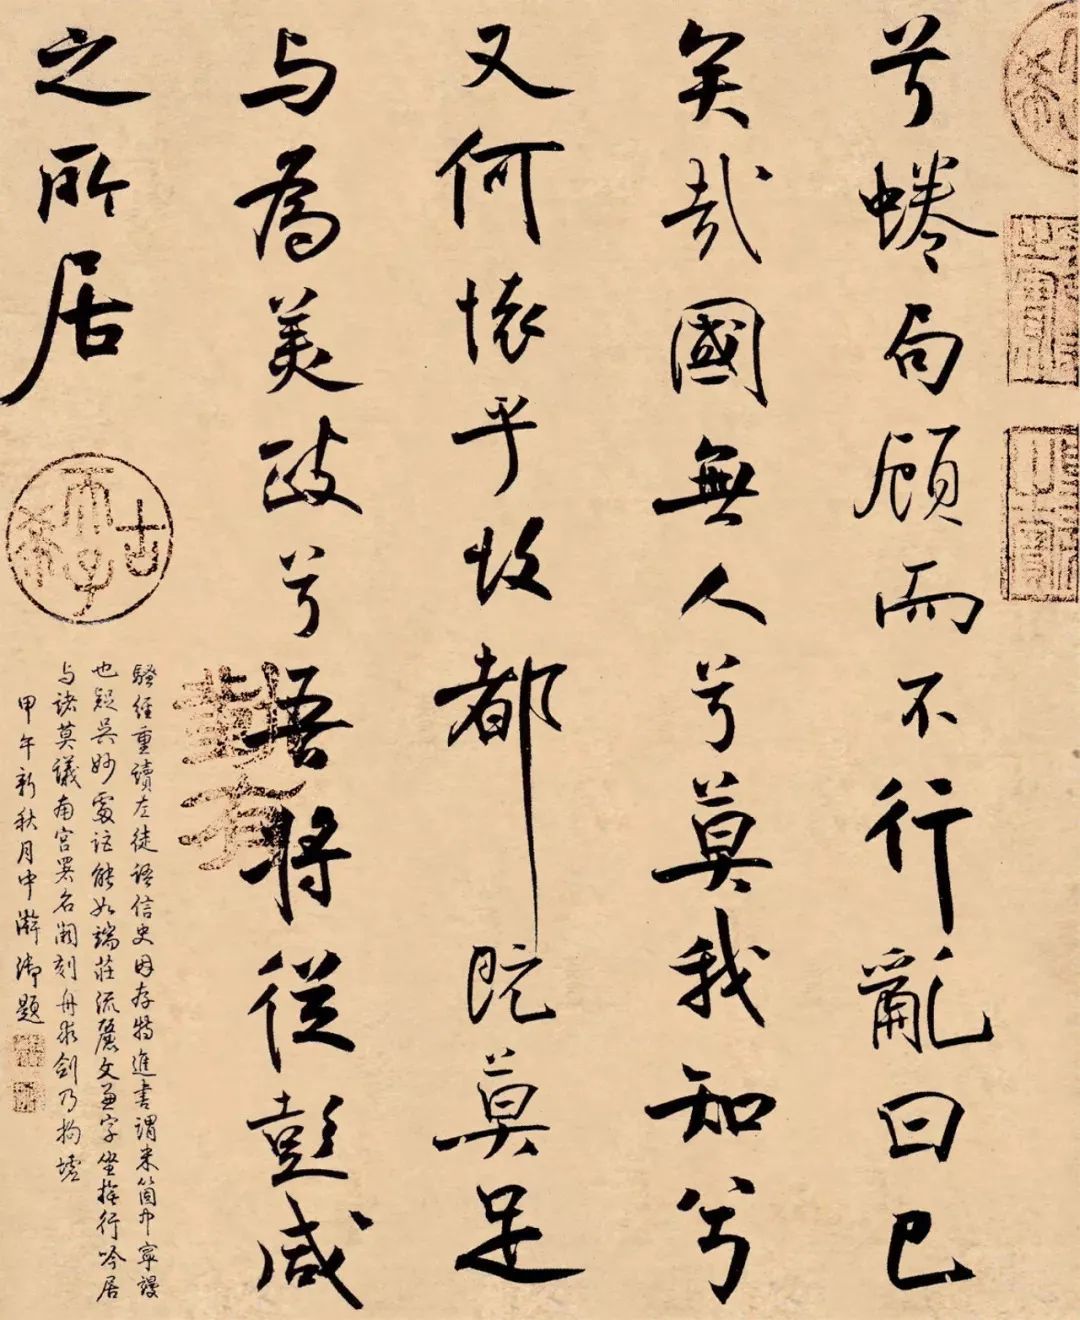 兮蜷局顧而不行亂曰已
矣哉國無人兮莫我知兮
又何懷乎故都既莫足
与為美政兮吾將從彭咸
之所居
古希天子
騷經重讀左徒語信史因存特進書謂米箇中寧謾
也疑吳妙處詎能如端莊流麗文兼字坐行吟居
与諸莫議南宮署名闕刻舟求劍乃拘墟
甲午新秋月中澣御題